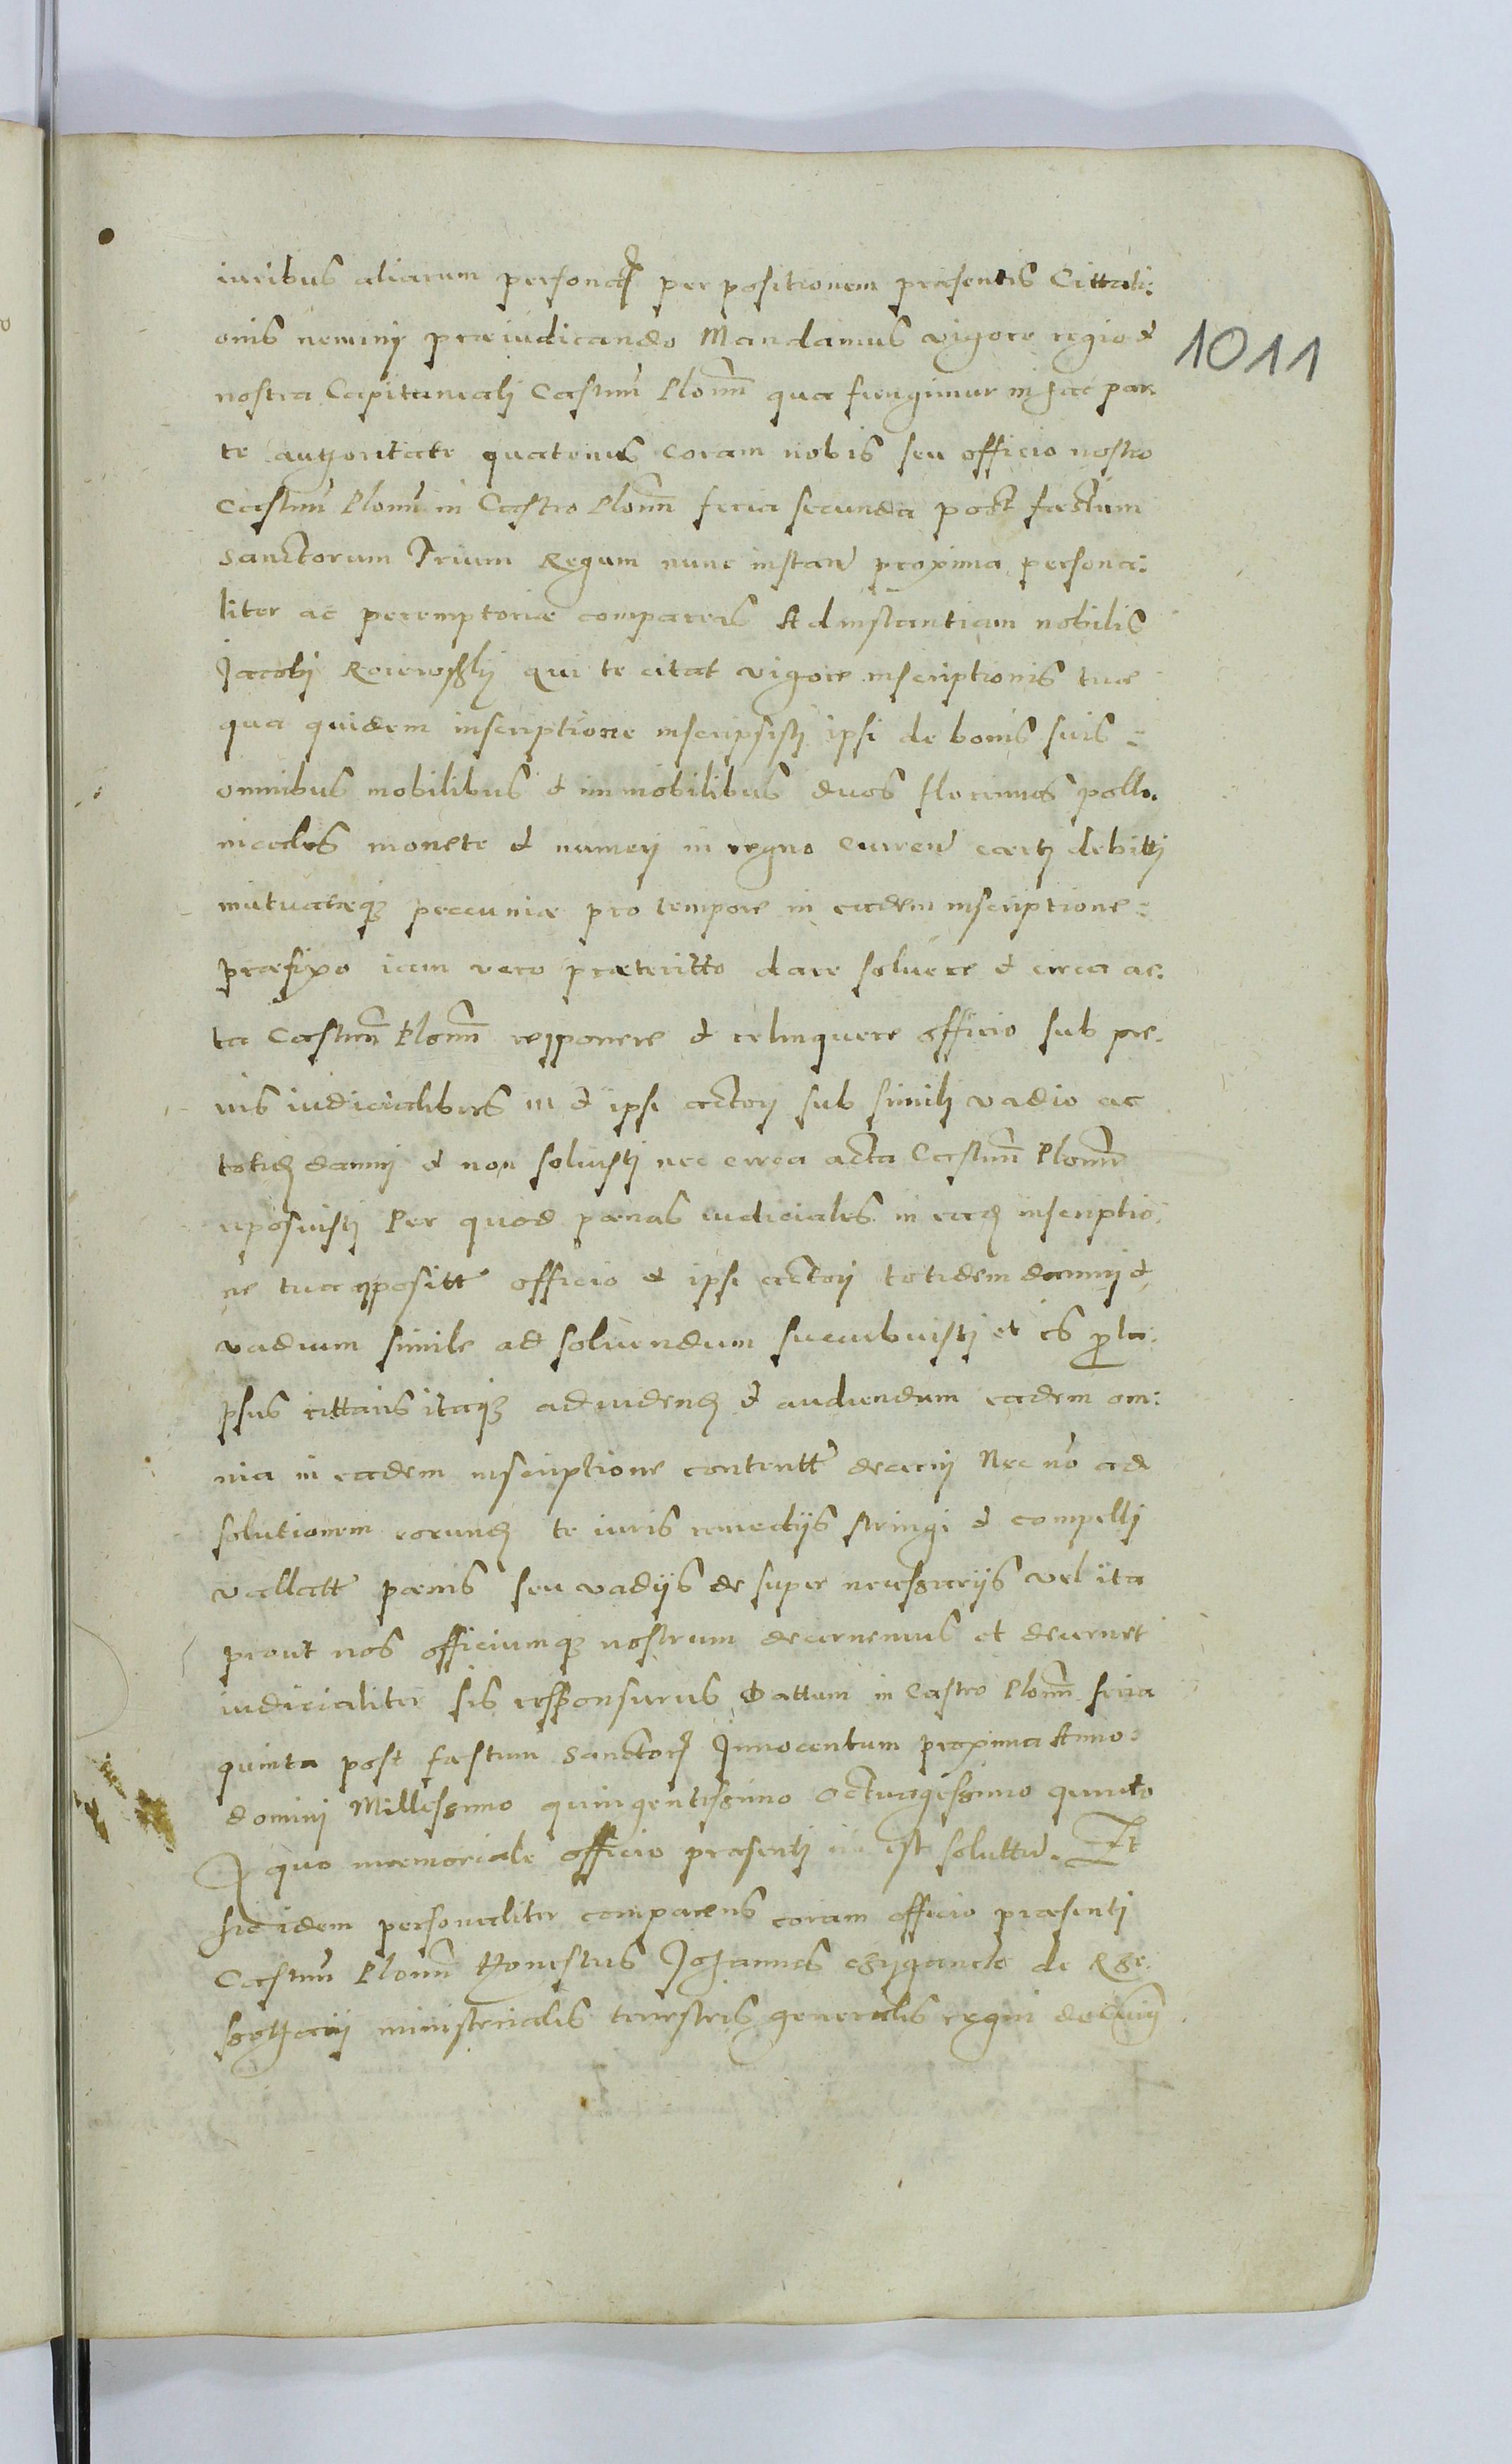 iuribus aliarum personaꝝ per positionem præsentis Cittati:
onis neminj præiudicando Mandamus vigore regio et
nostra Capitanealj Castren̄ Plonen̄ qua fungimur in hac par
te authoritate quatenus coram nobis seu officio nostro
Castren̄ Plonen̄ in Castro Plonen̄ feria secunda post fæstum
Sanctorum Trium Regum nunc instan̄ proxima persona:
liter ac peremptoriæ compareas Ad instantiam nobilis
Jacobj qui te citat vigore inscriptionis tuæ
qua quidem inscriptione inscripsistj ipsi de bonis suis
omnibus mobilibus et immobilibus duos florænos pollo.
nicales monete et numerj in regno curren̄ certj debittj
mutuatæqȝ peccuniæ pro tempore in eadem inscriptione
præfixo iam vero præteritto dare soluere et circa ac:
ta Castren̄ Plonen̄ repponere et relinquere officio sub pæ
nis iudicialibus III et ipsi actorj sub similj vadio ac
totid̄ damnj et non soluistj nec circa acta Castren̄ Plonen̄
reposuistj Per quod pænas iudiciales in ead̄ inscriptio
ne tua positt officio et ipsi actorj totidem damnj et
vadium simile ad soluendum succubuistj et es p la:
psus cittaris itaqȝ ad videnḍ et audiendum eadem om:
nia in eadem inscriptione contentt decernj Nec nō ad
solutionem eorunḍ te iuris remedijs stringi et compellj
vallatt pænis seu vadijs de super necessarijs vel ita
prout nos officiumqȝ nostrum decernemus et decernet
iudicialiter sis responsurus Dattum in Castro Plonen̄ feria
quinta post fæstum Sanctoꝝ Innocentum proxima Anno
dominj Millessimo quingentessimo Octuagessimo quinto
A quo mæmoriale officio præsentj est soluttu. Et
hic idem personaliter comparens coram officio præsentj
Castren̄ Plonen̄ Honestus Johannes de Rze
ministerialis terrestris generalis regni
1011